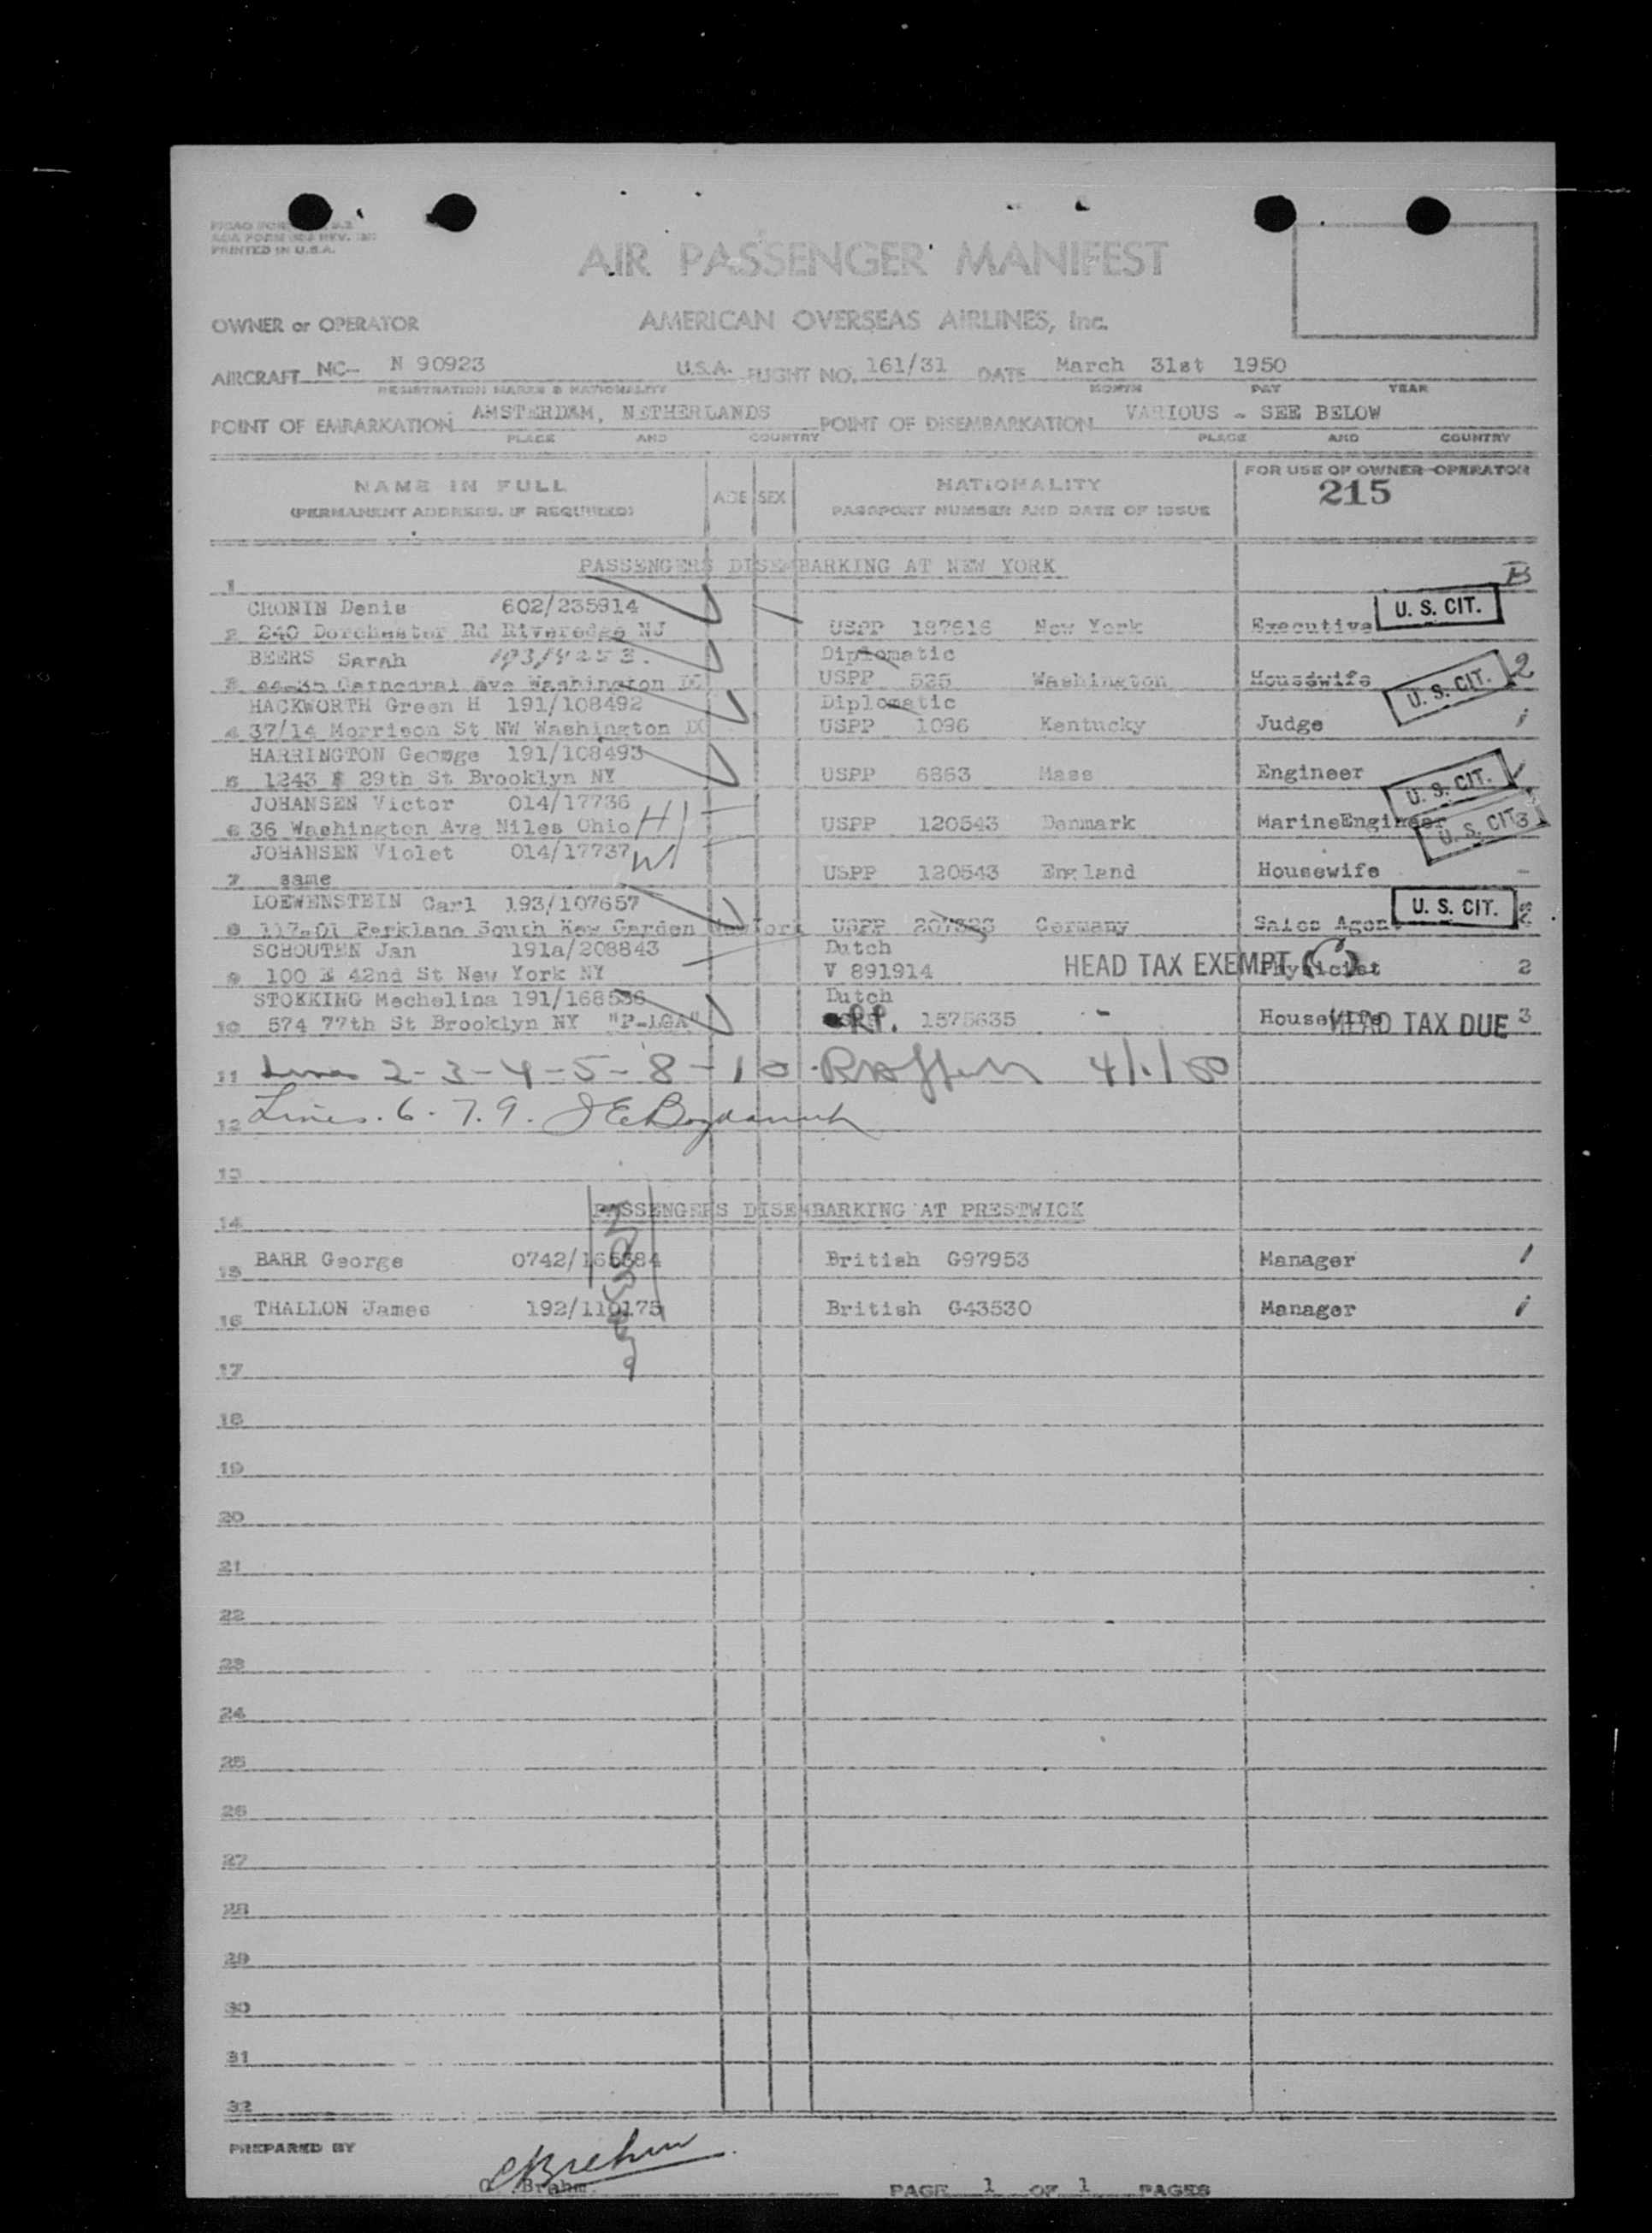 PRINTED IN U.S.A.
AIR PASSENGER MANIFEST
OWNER or OPERATOR AMERICAN OVERSEAS AIRLINES, Inc.
AIRCRAFT NC- N 90923 U.S.A. FLIGHT NO. 161/31 DATE March 31st 1950
REGISTRATION MARKS & NATIONALITY MONTH DAY YEAR
POINT OF EMBARKATION AMSTERDAM, NETHERLANDS POINT OF DISEMBARKATION VARIOUS - SEE BELOW
PLACE AND COUNTRY PLACE AND COUNTRY
NAME IN FULL AGE SEX NATIONALITY FOR USE OF OWNER OPERATOR
(PERMANENT ADDRESS, IF REQUIRED) PASSPORT NUMBER AND DATE OF ISSUE 215
PASSENGERS DISEMBARKING AT NEW YORK
1 B
CRONIN Denis 602/235914 U. S. CIT.
2 240 Dorchester Rd Riveredge NJ USPP 187616 New York Executive
BEERS Sarah Diplomatic
3 Cathedral Ave Washington DC USPP 525 Washington Housewife U. S. CIT. 2
HACKWORTH Green H 191/108492 Diplomatic
4 37/14 Morrison St NW Washington DC USPP 1096 Kentucky Judge 1
HARRINGTON George 191/108493
5 1243 29th St Brooklyn NY USPP 6863 Mass Engineer U. S. CIT. 1
JOHANSEN Victor 014/17736 H
6 36 Washington Ave Niles Ohio USPP 120543 Denmark MarineEngineer U. S. CIT. 3
JOHANSEN Violet 014/17737 W
7 same USPP 120543 England Housewife -
LOEWENSTEIN Carl 193/107657 U. S. CIT.
8 117-01 Parklane South Kew Garden New York USPP Germany Sales Agent
SCHOUTEN Jan 191a/208843 Dutch
9 100 E 42nd St New York NY V 891914 HEAD TAX EXEMPT Physicist 2
STOKKING Mechelina 191/168536 Dutch
10 574 77th St Brooklyn NY "P-LGA" R.P. 1575635 - Housewife HEAD TAX DUE 3
11 Lines 2-3-4-5-8-10. 4/1/50
12 Lines. 6. 7. 9.
13
14 PASSENGERS DISEMBARKING AT PRESTWICK
15 BARR George British G97953 Manager 1
16 THALLON James 192/110175 British G43530 Manager 1
17
18
19
20
21
22
23
24
25
26
27
28
29
30
31
32
PREPARED BY
Brehm
PAGE 1 OF 1 PAGES